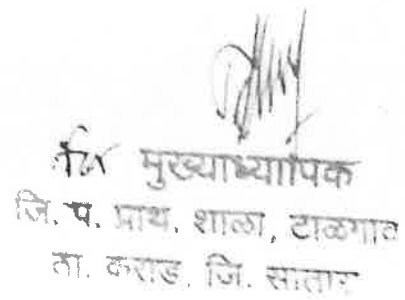 मुख्याध्यापिक
जि. प. प्राथ. शाळा, टाळगाव
ता. कराड, जि. सातारा